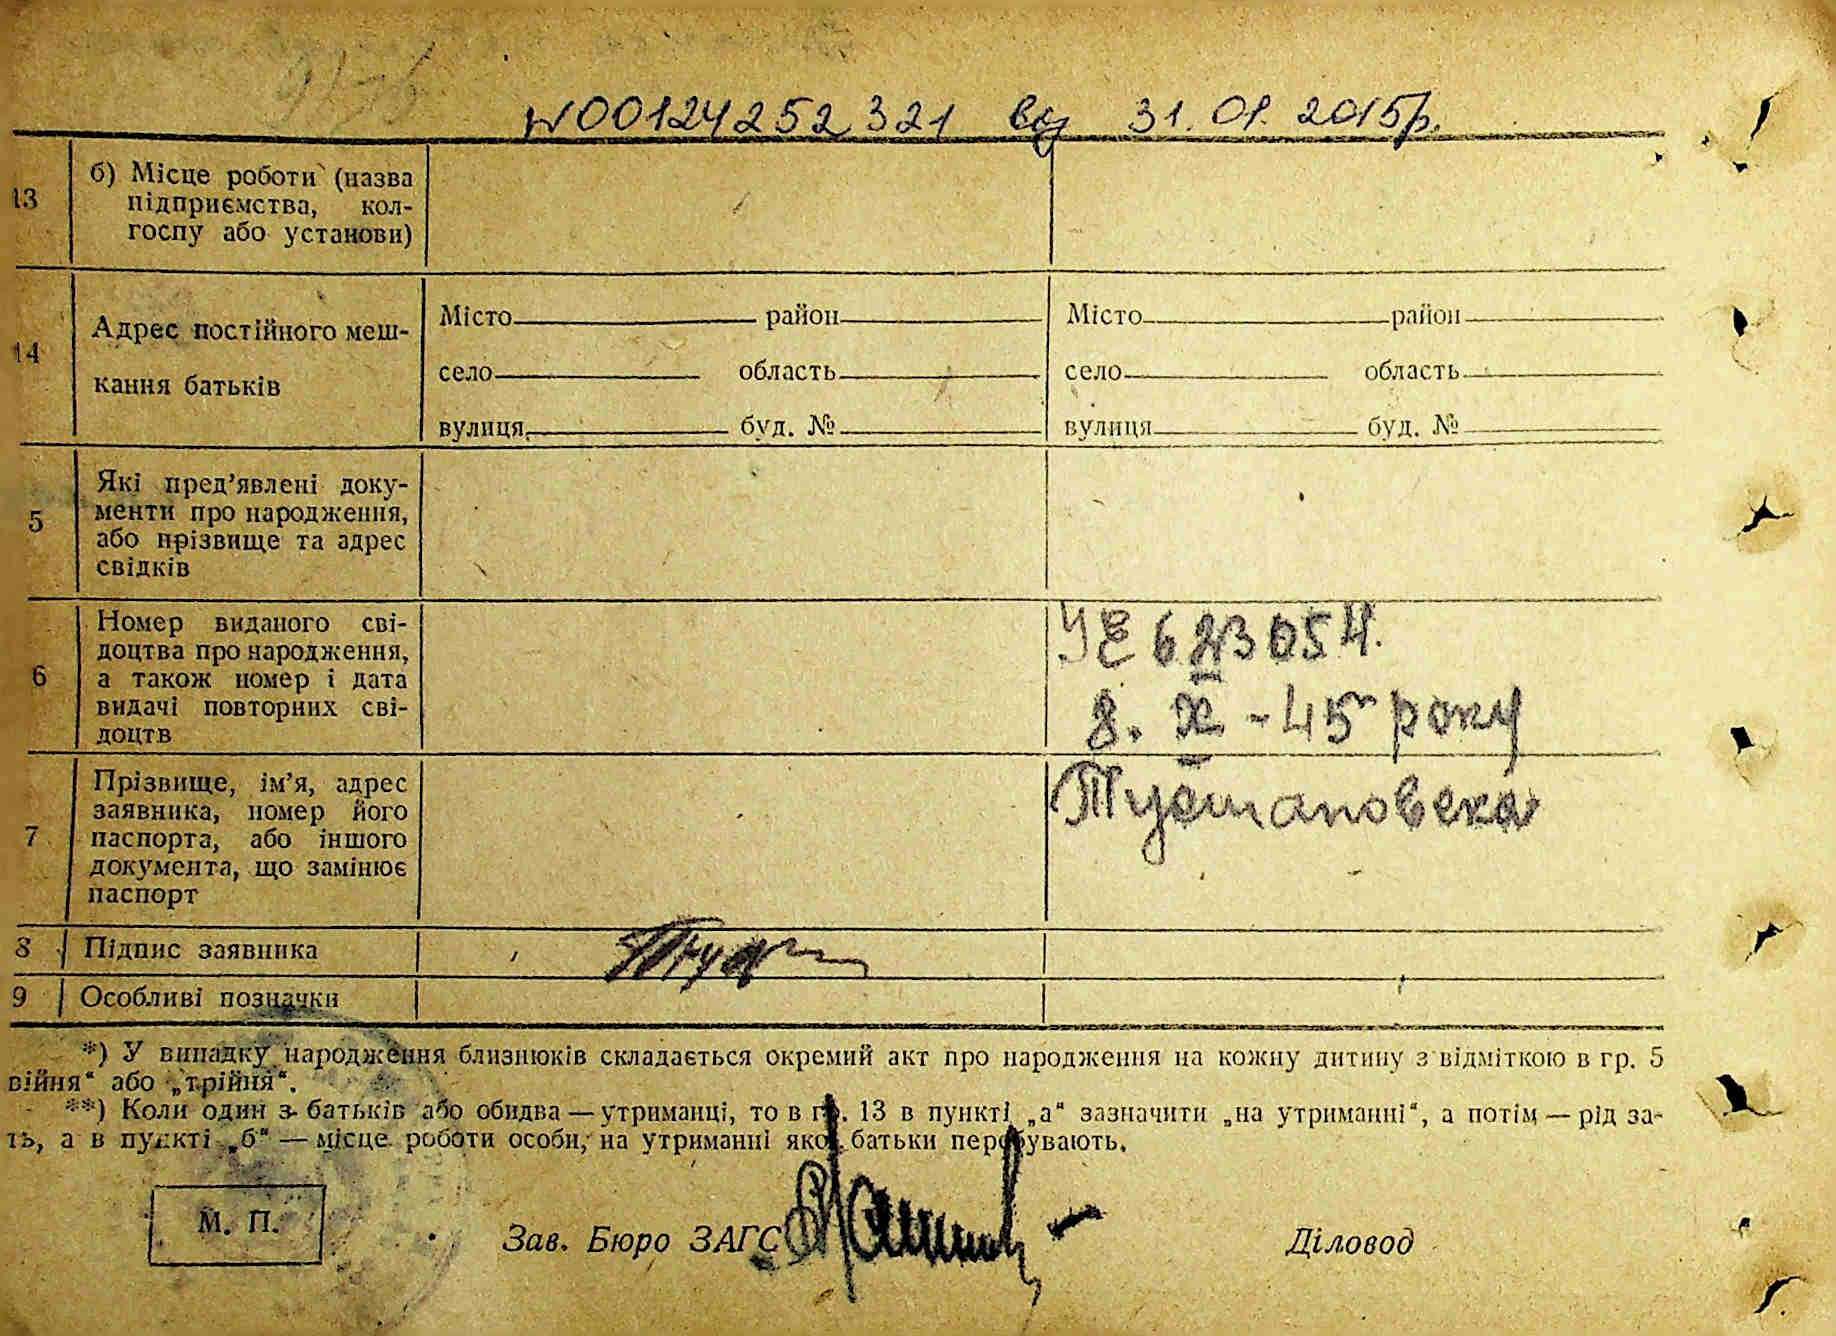 N00124252321 від 31.01.2015р.
13
б) Місце роботи (назва
підприємства, кол-
госпу або установи)
14
Адрес постійного меш-
кання батьків
Місто район Місто район
село область село область
вулиця буд. № вулиця буд. №
5
Які пред’явлені доку-
менти про народження,
або прізвище та адрес
свідків
6
Номер виданого сві-
доцтва про народження,
а також номер і дата
видачі повторних сві-
доцтв
УЕ 623054.
8. IX - 45 року
7
Прізвище, ім’я, адрес
заявника, номер його
паспорта, або іншого
документа, що замінює
паспорт
Тустановска
8 Підпис заявника
9 Особливі позначки
*) У випадку народження близнюків складається окремий акт про народження на кожну дитину з відміткою в гр. 5
війня“ або „трійня“.
**) Коли один з батьків або обидва — утриманці, то в гр. 13 в пункті „а“ зазначити „на утриманні“, а потім — рід за-
ть, а в пункті „б“ — місце роботи особи, на утриманні якої батьки перебувають.
М. П. Зав. Бюро ЗАГС Діловод